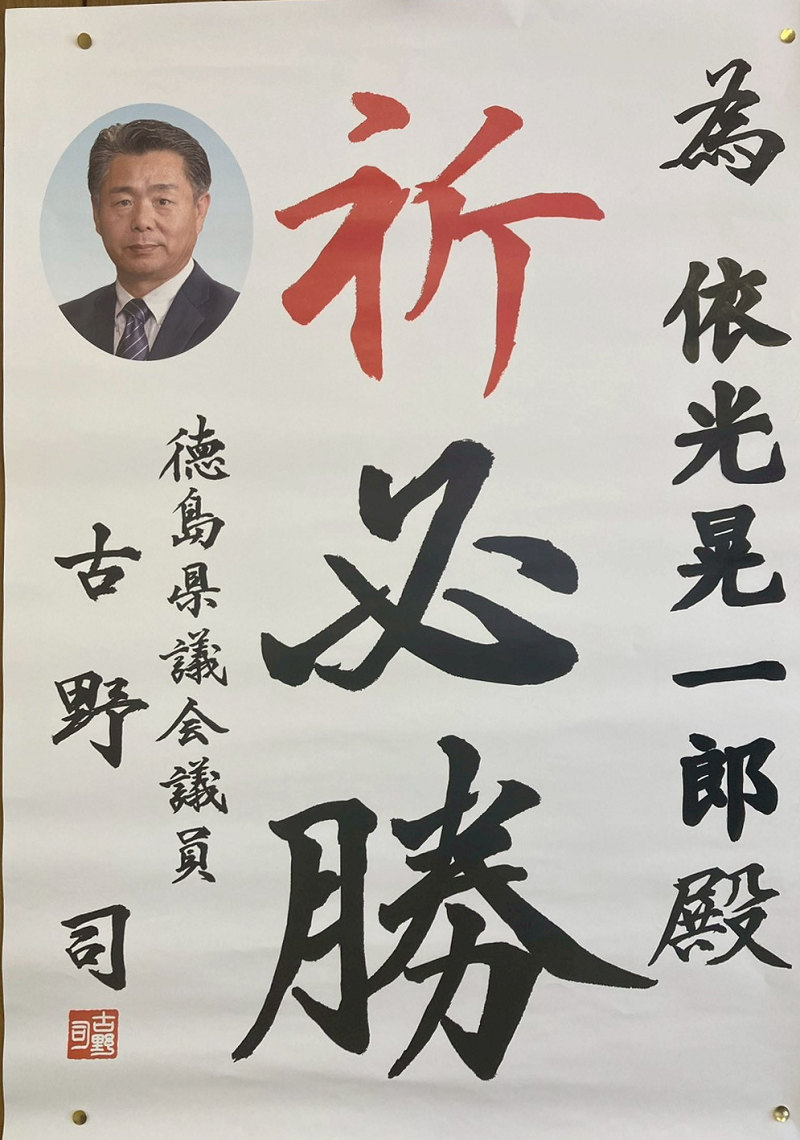 為 依光晃一郎殿
祈必勝
徳島県議会議員
古野司
古野司